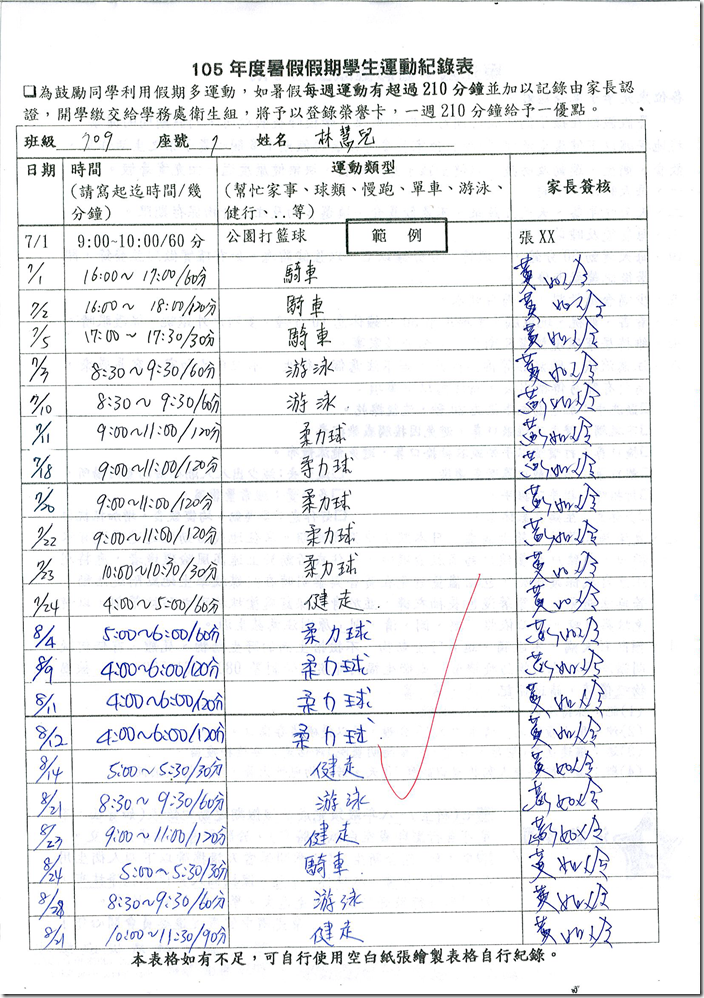 105 年度暑假假期學生運動紀錄表
□為鼓勵同學利用假期多運動，如暑假每週運動有超過 210 分鐘並加以記錄由家長認
證，開學繳交給學務處衛生組，將予以登錄榮譽卡，一週 210 分鐘給予一優點。
班級 709 座號 7 姓名 林慧兒
日期 時間 運動類型 家長簽核
(請寫起迄時間/幾 (幫忙家事、球類、慢跑、單車、游泳、
分鐘) 健行、..等)
7/1 9:00~10:00/60 分 公園打籃球 範 例 張 XX
7/1 16:00~17:00/60分 騎車
7/2 16:00~18:00/120分 騎車
7/5 17:00~17:30/30分 騎車
7/3 8:30~9:30/60分 游泳
7/10 8:30~9:30/60分 游泳
7/11 9:00~11:00/120分 柔力球
7/18 9:00~11:00/120分 柔力球
7/20 9:00~11:00/120分 柔力球
7/22 9:00~11:00/120分 柔力球
7/23 10:00~10:30/30分 柔力球
7/24 4:00~5:00/60分 健走.
8/4 5:00~6:00/60分 柔力球
8/9 4:00~6:00/120分 柔力球
8/11 4:00~6:00/120分 柔力球
8/12 4:00~6:00/120分 柔力球
8/14 5:00~5:30/30分 健走
8/21 8:30~9:30/60分 游泳
8/23 9:00~11:00/120分 健走
8/24 5:00~5:30/30分 騎車.
8/28 8:30~9:30/60分 游泳
8/21 10:00~11:30/90分 健走
本表格如有不足，可自行使用空白紙張繪製表格自行紀錄。